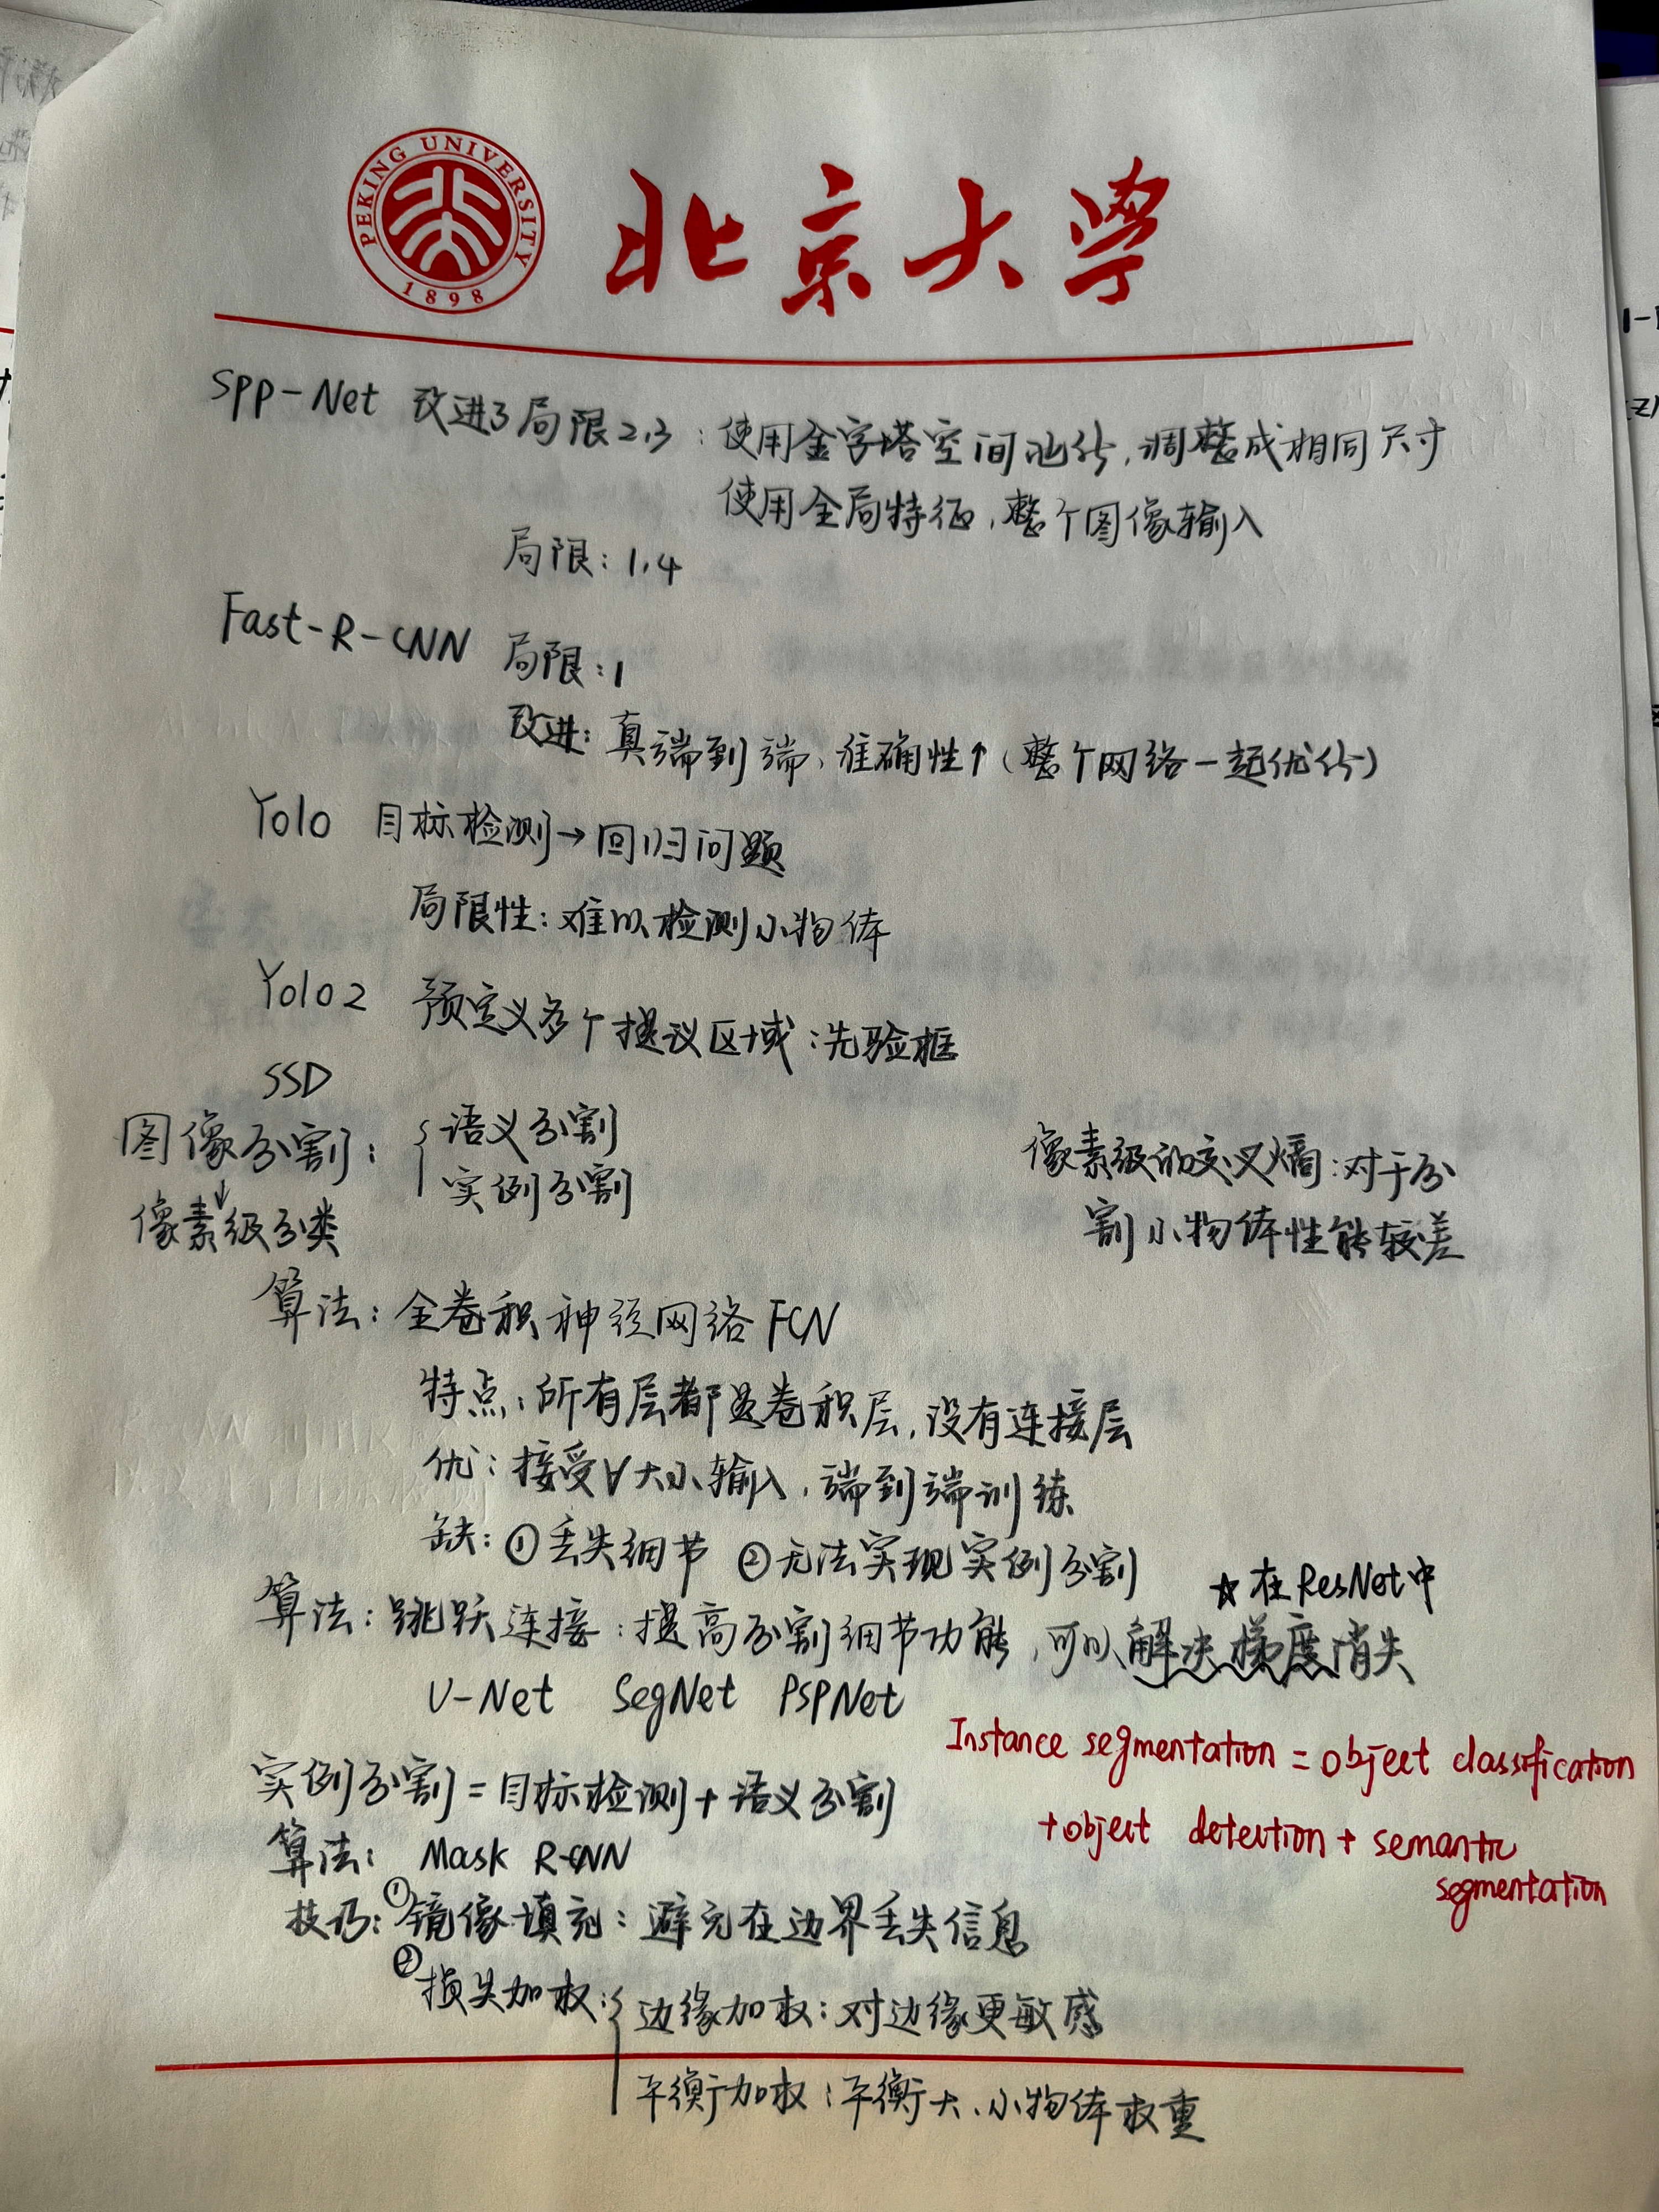 PEKING UNIVERSITY
1898
北京大学
SPP-Net 改进了局限2,3：使用金字塔空间池化，调整成相同尺寸
使用全局特征，整个图像输入
局限：1,4
Fast-R-CNN 局限：1
改进：真端到端、准确性↑（整个网络一起优化）
Yolo 目标检测→回归问题
局限性：难以检测小物体
Yolo2 预定义多个提议区域：先验框
SSD
图像分割：{语义分割
实例分割
↓
像素级分类
像素级的交叉熵：对于分
割小物体性能较差
算法：全卷积神经网络FCN
特点：所有层都是卷积层，没有连接层
优：接受∀大小输入，端到端训练
缺：①丢失细节 ②无法实现实例分割
☆在ResNet中
算法：跳跃连接：提高分割细节功能，可以解决梯度消失
U-Net SegNet PSPNet
Instance segmentation = object classification
+object detection + semantic
segmentation
实例分割=目标检测+语义分割
算法：Mask R-CNN
技巧：①镜像填充：避免在边界丢失信息
②损失加权：{边缘加权：对边缘更敏感
平衡加权：平衡大、小物体权重